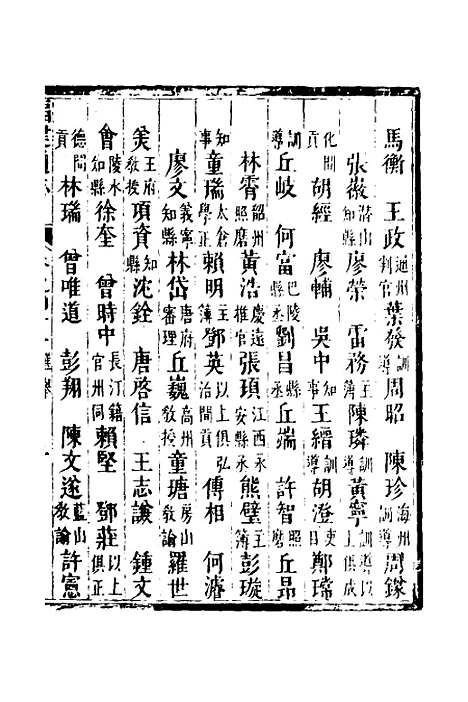 馬衡 王政通州判官葉發訓導周昭 陳珍海州訓導周鏷
張薇潛山知縣廖榮 雷務主簿陳璘訓導黃寧訓導以上俱成
化間貢胡經 廖輔 吳中知事王縉訓導胡澄吏目鄭瓀
訓導丘岐 何富巴陵縣丞劉昌縣丞丘端 許智照磨丘昂
林霄韶州照磨黃浩慶遠推官張頊江西永安縣丞熊璧主簿彭璇
知事童瑞太倉學正賴明主簿鄧英以上俱弘治間貢傅相 何濬
廖文義寧知縣林岱唐府審理丘巍高州教授童瑭房山教諭羅世
美王府教授項資知縣沈銓 唐啓信 王志諛 鍾文
會陵水知縣徐奎 曾時中長汀籍官州同賴堅 鄧莊以上俱正
德間貢林瑞 曾唯道 彭翔 陳文遂藍山教諭許憲